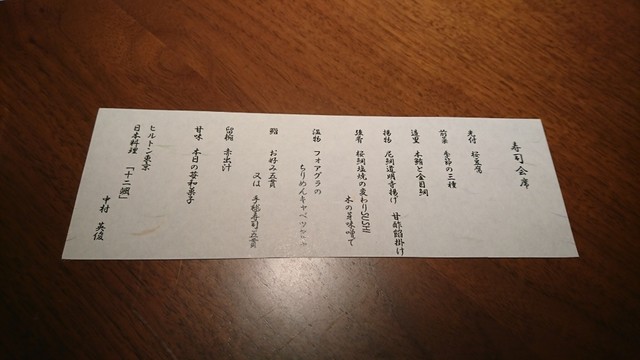 寿司会席
先付 桜豆腐
前菜 季節の三種
造里 本鮪と金目鯛
揚物 尼鯛道明寺揚げ 甘酢餡掛け
強肴 桜鯛塩焼の変わりSUSHI
木の芽味噌で
温物 フォアグラの
ちりめんキャベツ
鮨 お好み五貫
又は 手毬寿司五貫
留椀 赤出汁
甘味 本日の苺和菓子
ヒルトン東京
日本料理 「十二颯」
中村 英俊